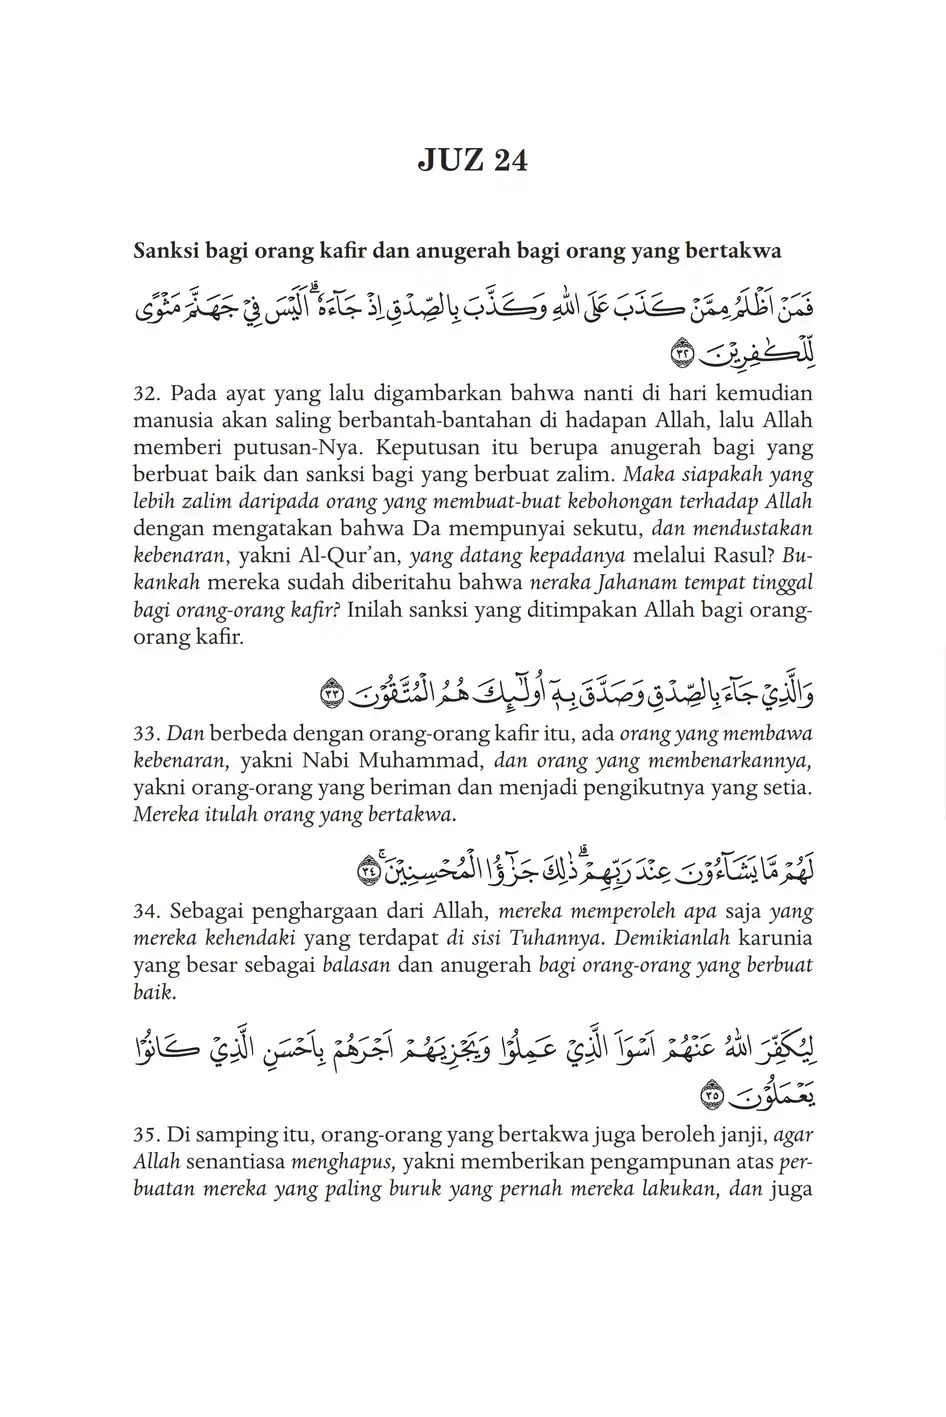 JUZ 24
Sanksi bagi orang kafir dan anugerah bagi orang yang bertakwa
فَمَنْ اَظْلَمُ مِمَّنْ كَذَبَ عَلَى اللّٰهِ وَكَذَّبَ بِالصِّدْقِ اِذْ جَاۤءَهٗۗ اَلَيْسَ فِيْ جَهَنَّمَ مَثْوًى
لِّلْكٰفِرِيْنَ ٣٢
32. Pada ayat yang lalu digambarkan bahwa nanti di hari kemudian
manusia akan saling berbantah-bantahan di hadapan Allah, lalu Allah
memberi putusan-Nya. Keputusan itu berupa anugerah bagi yang
berbuat baik dan sanksi bagi yang berbuat zalim. Maka siapakah yang
lebih zalim daripada orang yang membuat-buat kebohongan terhadap Allah
dengan mengatakan bahwa Da mempunyai sekutu, dan mendustakan
kebenaran, yakni Al-Qur’an, yang datang kepadanya melalui Rasul? Bu-
kankah mereka sudah diberitahu bahwa neraka Jahanam tempat tinggal
bagi orang-orang kafir? Inilah sanksi yang ditimpakan Allah bagi orang-
orang kafir.
وَالَّذِيْ جَاۤءَ بِالصِّدْقِ وَصَدَّقَ بِهٖٓ اُولٰۤىِٕكَ هُمُ الْمُتَّقُوْنَ ٣٣
33. Dan berbeda dengan orang-orang kafir itu, ada orang yang membawa
kebenaran, yakni Nabi Muhammad, dan orang yang membenarkannya,
yakni orang-orang yang beriman dan menjadi pengikutnya yang setia.
Mereka itulah orang yang bertakwa.
لَهُمْ مَّا يَشَاۤءُوْنَ عِنْدَ رَبِّهِمْۗ ذٰلِكَ جَزٰۤؤُا الْمُحْسِنِيْنَۚ ٣٤
34. Sebagai penghargaan dari Allah, mereka memperoleh apa saja yang
mereka kehendaki yang terdapat di sisi Tuhannya. Demikianlah karunia
yang besar sebagai balasan dan anugerah bagi orang-orang yang berbuat
baik.
لِيُكَفِّرَ اللّٰهُ عَنْهُمْ اَسْوَاَ الَّذِيْ عَمِلُوْا وَيَجْزِيَهُمْ اَجْرَهُمْ بِاَحْسَنِ الَّذِيْ كَانُوْا
يَعْمَلُوْنَ ٣٥
35. Di samping itu, orang-orang yang bertakwa juga beroleh janji, agar
Allah senantiasa menghapus, yakni memberikan pengampunan atas per-
buatan mereka yang paling buruk yang pernah mereka lakukan, dan juga